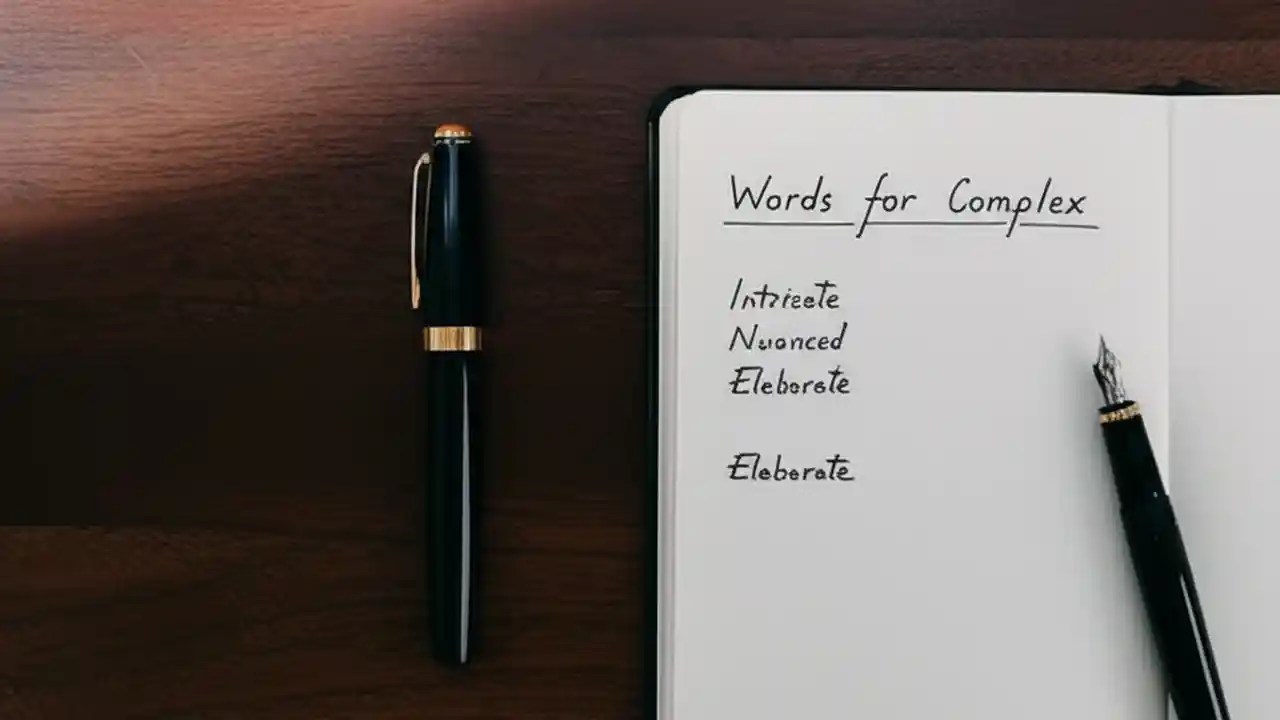 Words for Complex
Intricate
Nuanced
Elaborate
Elaborate